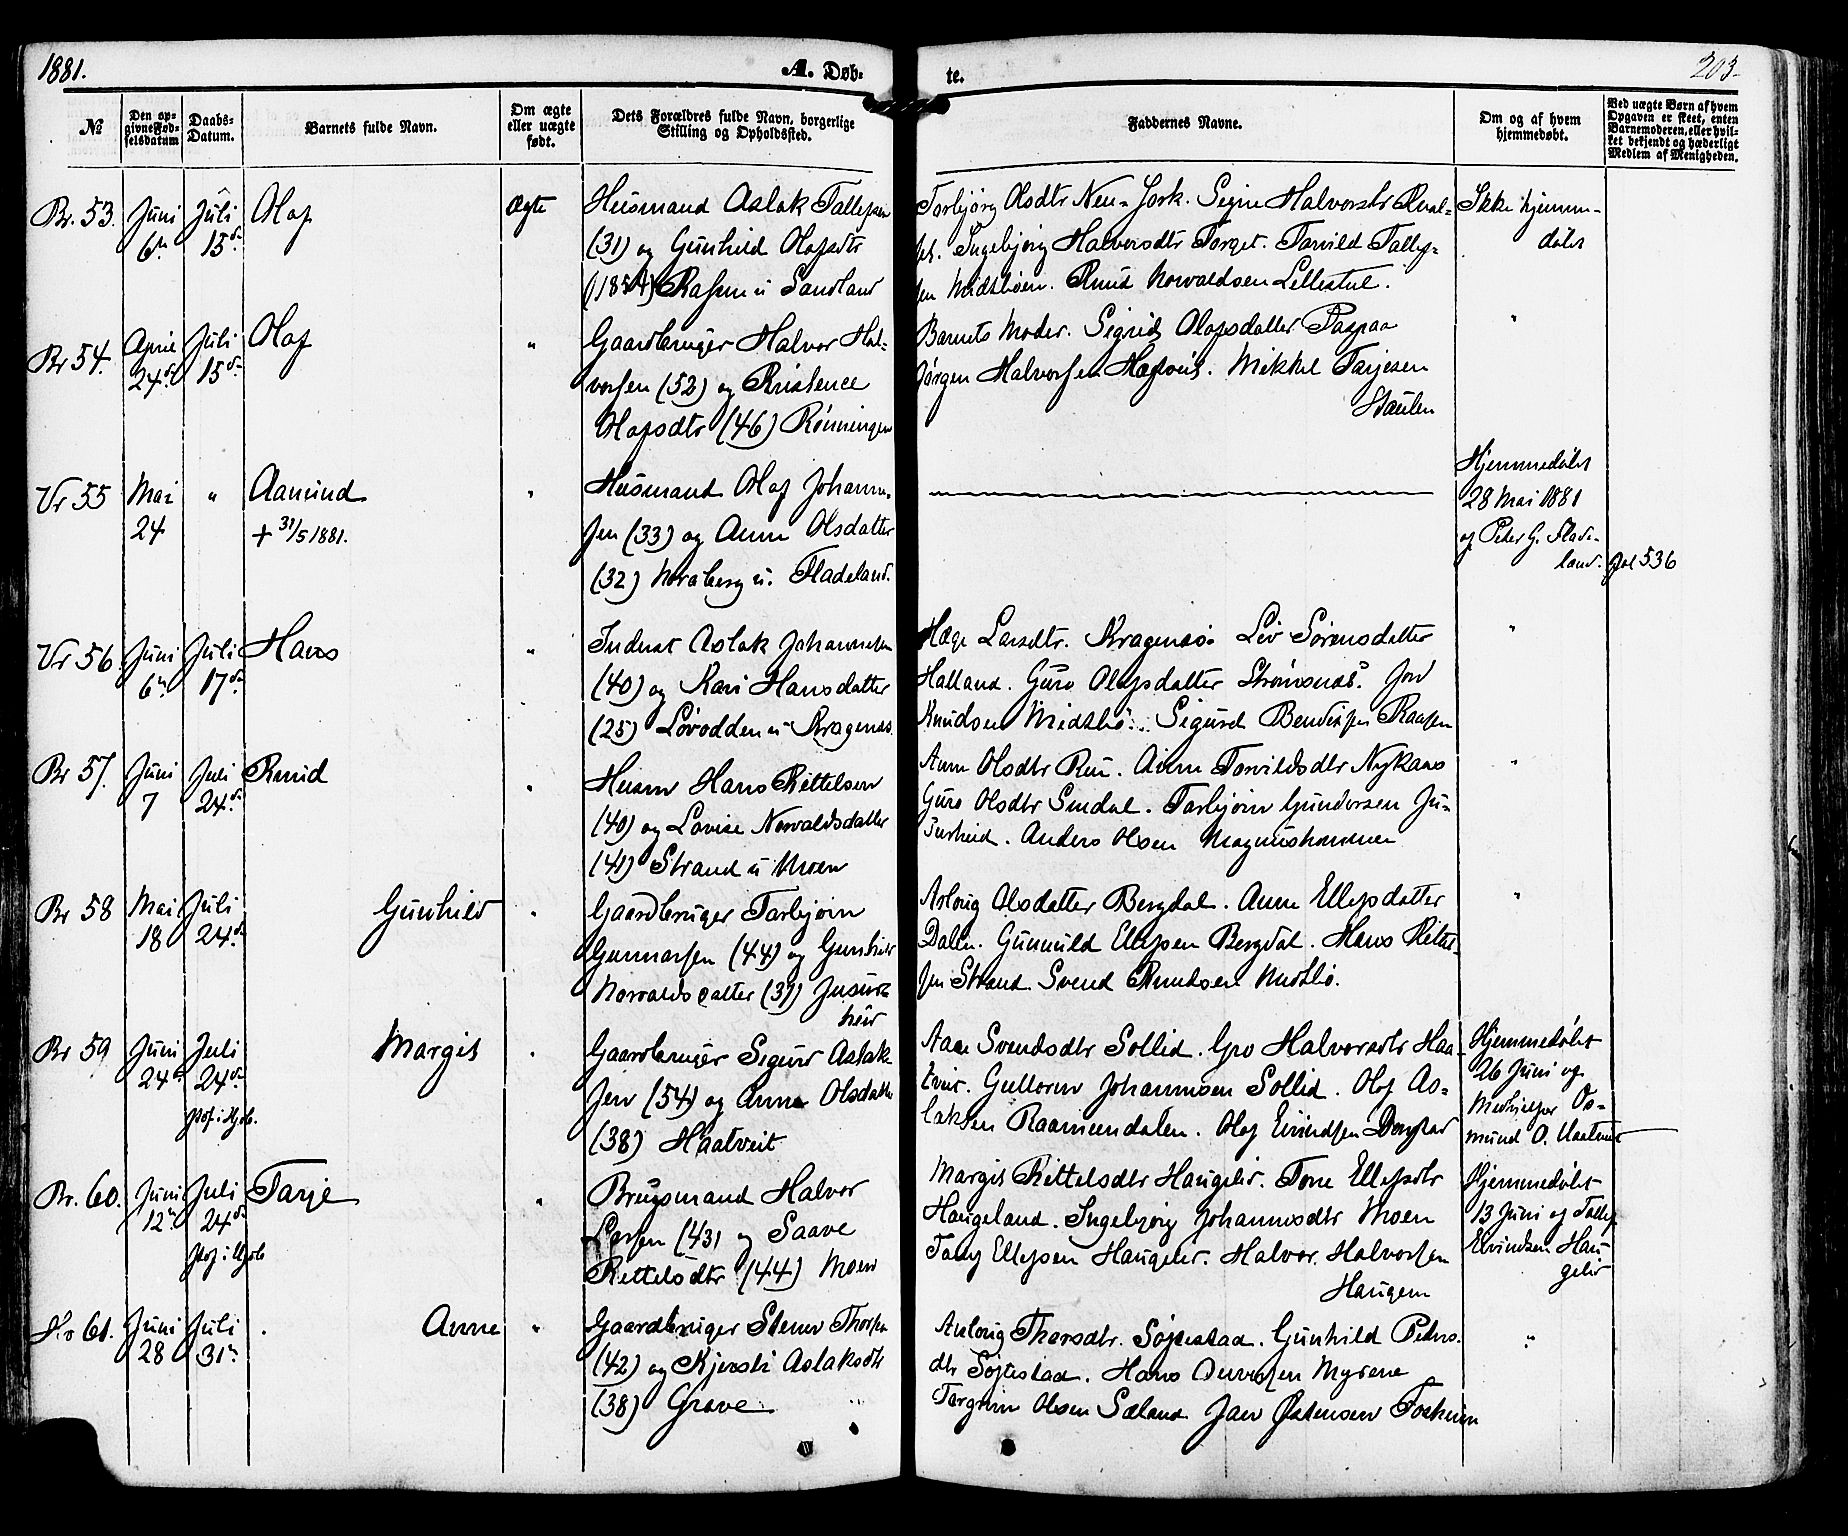 1881.
A. Døb-
te.
203-
№
Den op-
givne Fød-
selsdatum
Daabs-
Datum.
Barnets fulde Navn.
Om ægte
eller uægte
født.
Dets Forældres fulde Navn, borgerlige
Stilling og Opholdssted.
Faddernes Navne.
Om og af hvem
hjemmedøbt.
Ved uægte Børn af hvem
Opgaven er skeet, enten
Barnemoderen, eller hvil-
ket bekjendt og hæderligt
Medlem af Menigheden.
Br. 53.
Juni
6
Juli
15
Olaf
Ægte
Husmand Aslak Tallefsen
(31) og Gunhild Olafsdtr
(1854) u Sandland
Torbjørg Olsdtr New-York. Signe Halvorsdtr
Ingebjørg Halvorsdtr Torget. Tarvild Tallef-
sen Midtbøen. Knud Norvaldsen Lillestul.
Ikke hjemm-
døbt
Br 54.
April
24
Juli
15
Olaf
"
Gaardbruger Halvor Hal-
vorsen (52) og Kristence
Olafsdtr (46) Rønningen
Barnets Moder. Sigrid Olafsdatter
Jørgen Halvorsen. Mikkel Tarjesen
Staulen
"
Vr 55
Mai
24
"
Aamund
+ 31/5 1881.
"
Husmand Olaf Johann-
sen (33) og Anne Olsdatter
(32) Nordberg u. Fladeland.
Hjemmedøbt
28 Mai 1881
af Peter G. Flade-
land.
536
Vr 56
Juni
6
Juli
17
Hans
"
Inderst Aslak Johannesen
(40) og Kari Hansdatter
(25) Løvodden u Kragenæs
Hæge Larsdtr. Kragenæs. Liv Sørensdatter
Halland. Guro Olafsdatter Strømsnæs. Jon
Knudsen Midtbø. Sigurd Bendiksen
"
Br 57.
Juni
7
Juli
24
Knud
"
Husm Hans Kittelsen
(40) og Lovise Norvaldsdatter
(41) Strand u Moen
Anne Olsdtr. Anne Torvildsdtr Nykaas
Guro Olsdtr. Tarbjørn Gundersen Ju-
Anders Olsen
"
Br 58
Mai
18
Juli
24
Gunhild
"
Gaardbruger Tarbjørn
Gunnarsen (44) og Gunhild
Norvaldsdatter (37) Jusur-
heid
Aslaug Olsdatter Bergdal. Anne Ellefsdatter
Dalen. Gunnuld Ellefsen Bergdal. Hans Kittel-
sen Strand. Svend Knudsen Midtbø.
"
Br 59
Juni
24
Juli
24
Margit
"
Gaardbruger Sigurd Aslak-
sen (54) og Anne Olsdatter
(38) Haatveit
Aase Svendsdtr Sollid. Gro Halvorsdtr Haa-
tveit. Gullorm Johannesen Sollid. Olaf As-
laksen Raamundalen. Olaf Eivindsen
Hjemmedøbt
26 Juni af
Medhjelper Os-
mund O. Haatveit
Br. 60.
Juni
12
Juli
24
Tarje
"
Brugsmand Halvor
Larsen (43) og Saave
Kittelsdtr (44) Moen
Margit Kittelsdtr Haugelid. Tone Ellefsdtr
Haugeland. Ingebjørg Johannesdtr Moen
Ellefsen Haugelid. Halvor Halvorsen
Haugen
Hjemmedøbt
13 Juni af Tallef
Eivindsen Hau-
gelid
61.
Juni
28
Juli
31
Anne
"
Gaardbruger Stener Thorsen
(42) og Kjersti Aslaksdtr
(38) Grave
Aslaug Thorsdtr. Søftestad. Gunhild Peders-
dtr Søftestad. Hans Myrene
Torgrim Olsen Sæland. Jan Østensen
"